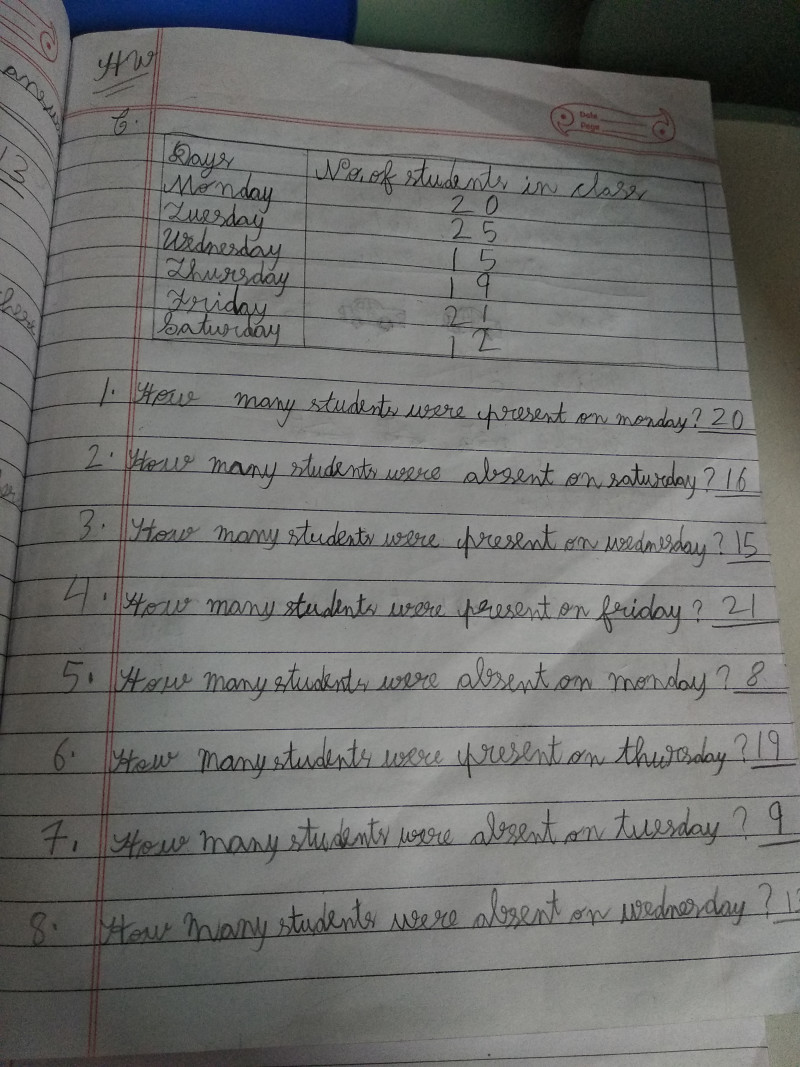 HW
Date
Page
6.
Days No. of students in class
Monday 20
Tuesday 25
Wednesday 15
Thursday 19
Friday 21
Saturday 12
1. How many students were present on monday? 20
2. How many students were absent on saturday? 16
3. How many students were present on wednesday? 15
4. How many students were present on friday? 21
5. How many students were absent on monday? 8
6. How many students were present on thursday? 19
7. How many students were absent on tuesday? 9
8. How many students were absent on wednesday?
13